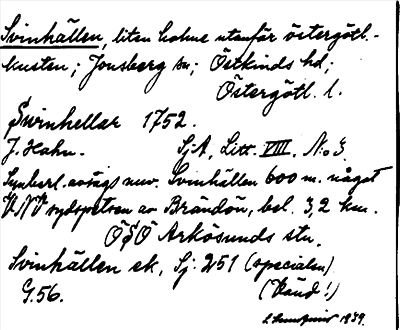 Svinhällen, liten holme utanför östergötl.-
kusten; Jonsberg sn; Östkinds hd;
Östergötl. l.
Swinhellar 1752.
J. Hahn. SjA, Litt. VIII. No 3
Synberl. avsågs nuv. Svinhällen 600 m. något
VNV sydspetsen av Brändön, bel. 3,2 km.
OSO Arkösunds stn.
Svinhällen ek, Sj: 251 (specialen)
G.56. (Känd!)
1939.